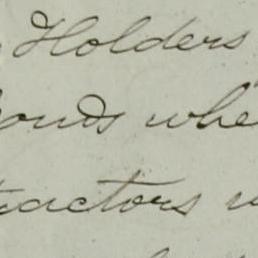 Holders
onds whe
tractors w